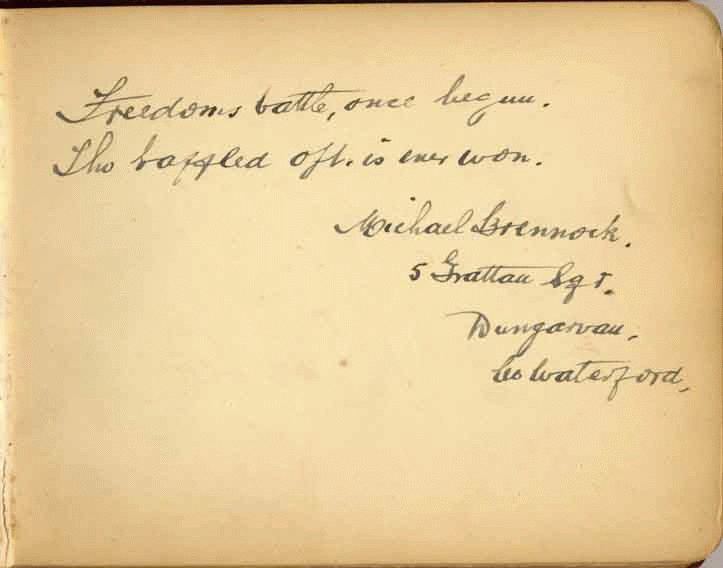 Freedoms battle, once begun.
Tho baffled oft. is ever won.
Michael Brennock.
5 Grattan Sqr.
Dungarvan.
Co Waterford,